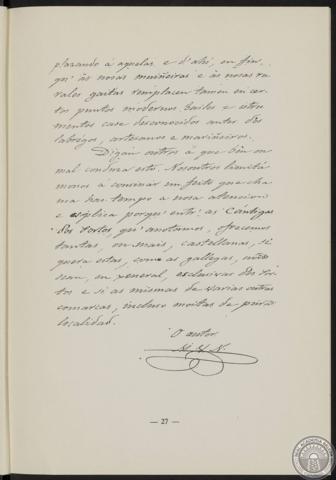 plazando á aquelas e d'ahi, en fin,
qu' ás nosas muiñeiras e ás nosas ru
rales gaitas remplacen tamen en cer
tos puntos modernos bailes e estru
mentos case desconocidos antes dos
labregos, artesanos e mariñeiros.
Digan outros á que ben ou
mal conduza esto. Nosoutros limitá
monos á consinar un feito que cha
ma hai tempo a nosa atención
e esplica porqué entr' as Cántigas
dos tortos qu' anotamos, ofrecemos
tantas, ou mais, castellanas, si
quera estas, com as gallegas, non
sean, en xeneral, esclusivas dos tor
tos e si as mismas de varias outras
comarcas, incluso moitas de
localidad.
O autor
— 27 —